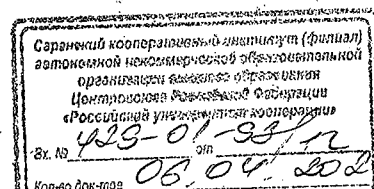 Саранский кооперативный институт (филиал)
автономной некоммерческой образовательной
организации высшего образования
Центросоюза Российской Федерации
«Российский университет кооперации»
Вх. № 425-01-93/12 от
06.04.202
Кол-во док-тов